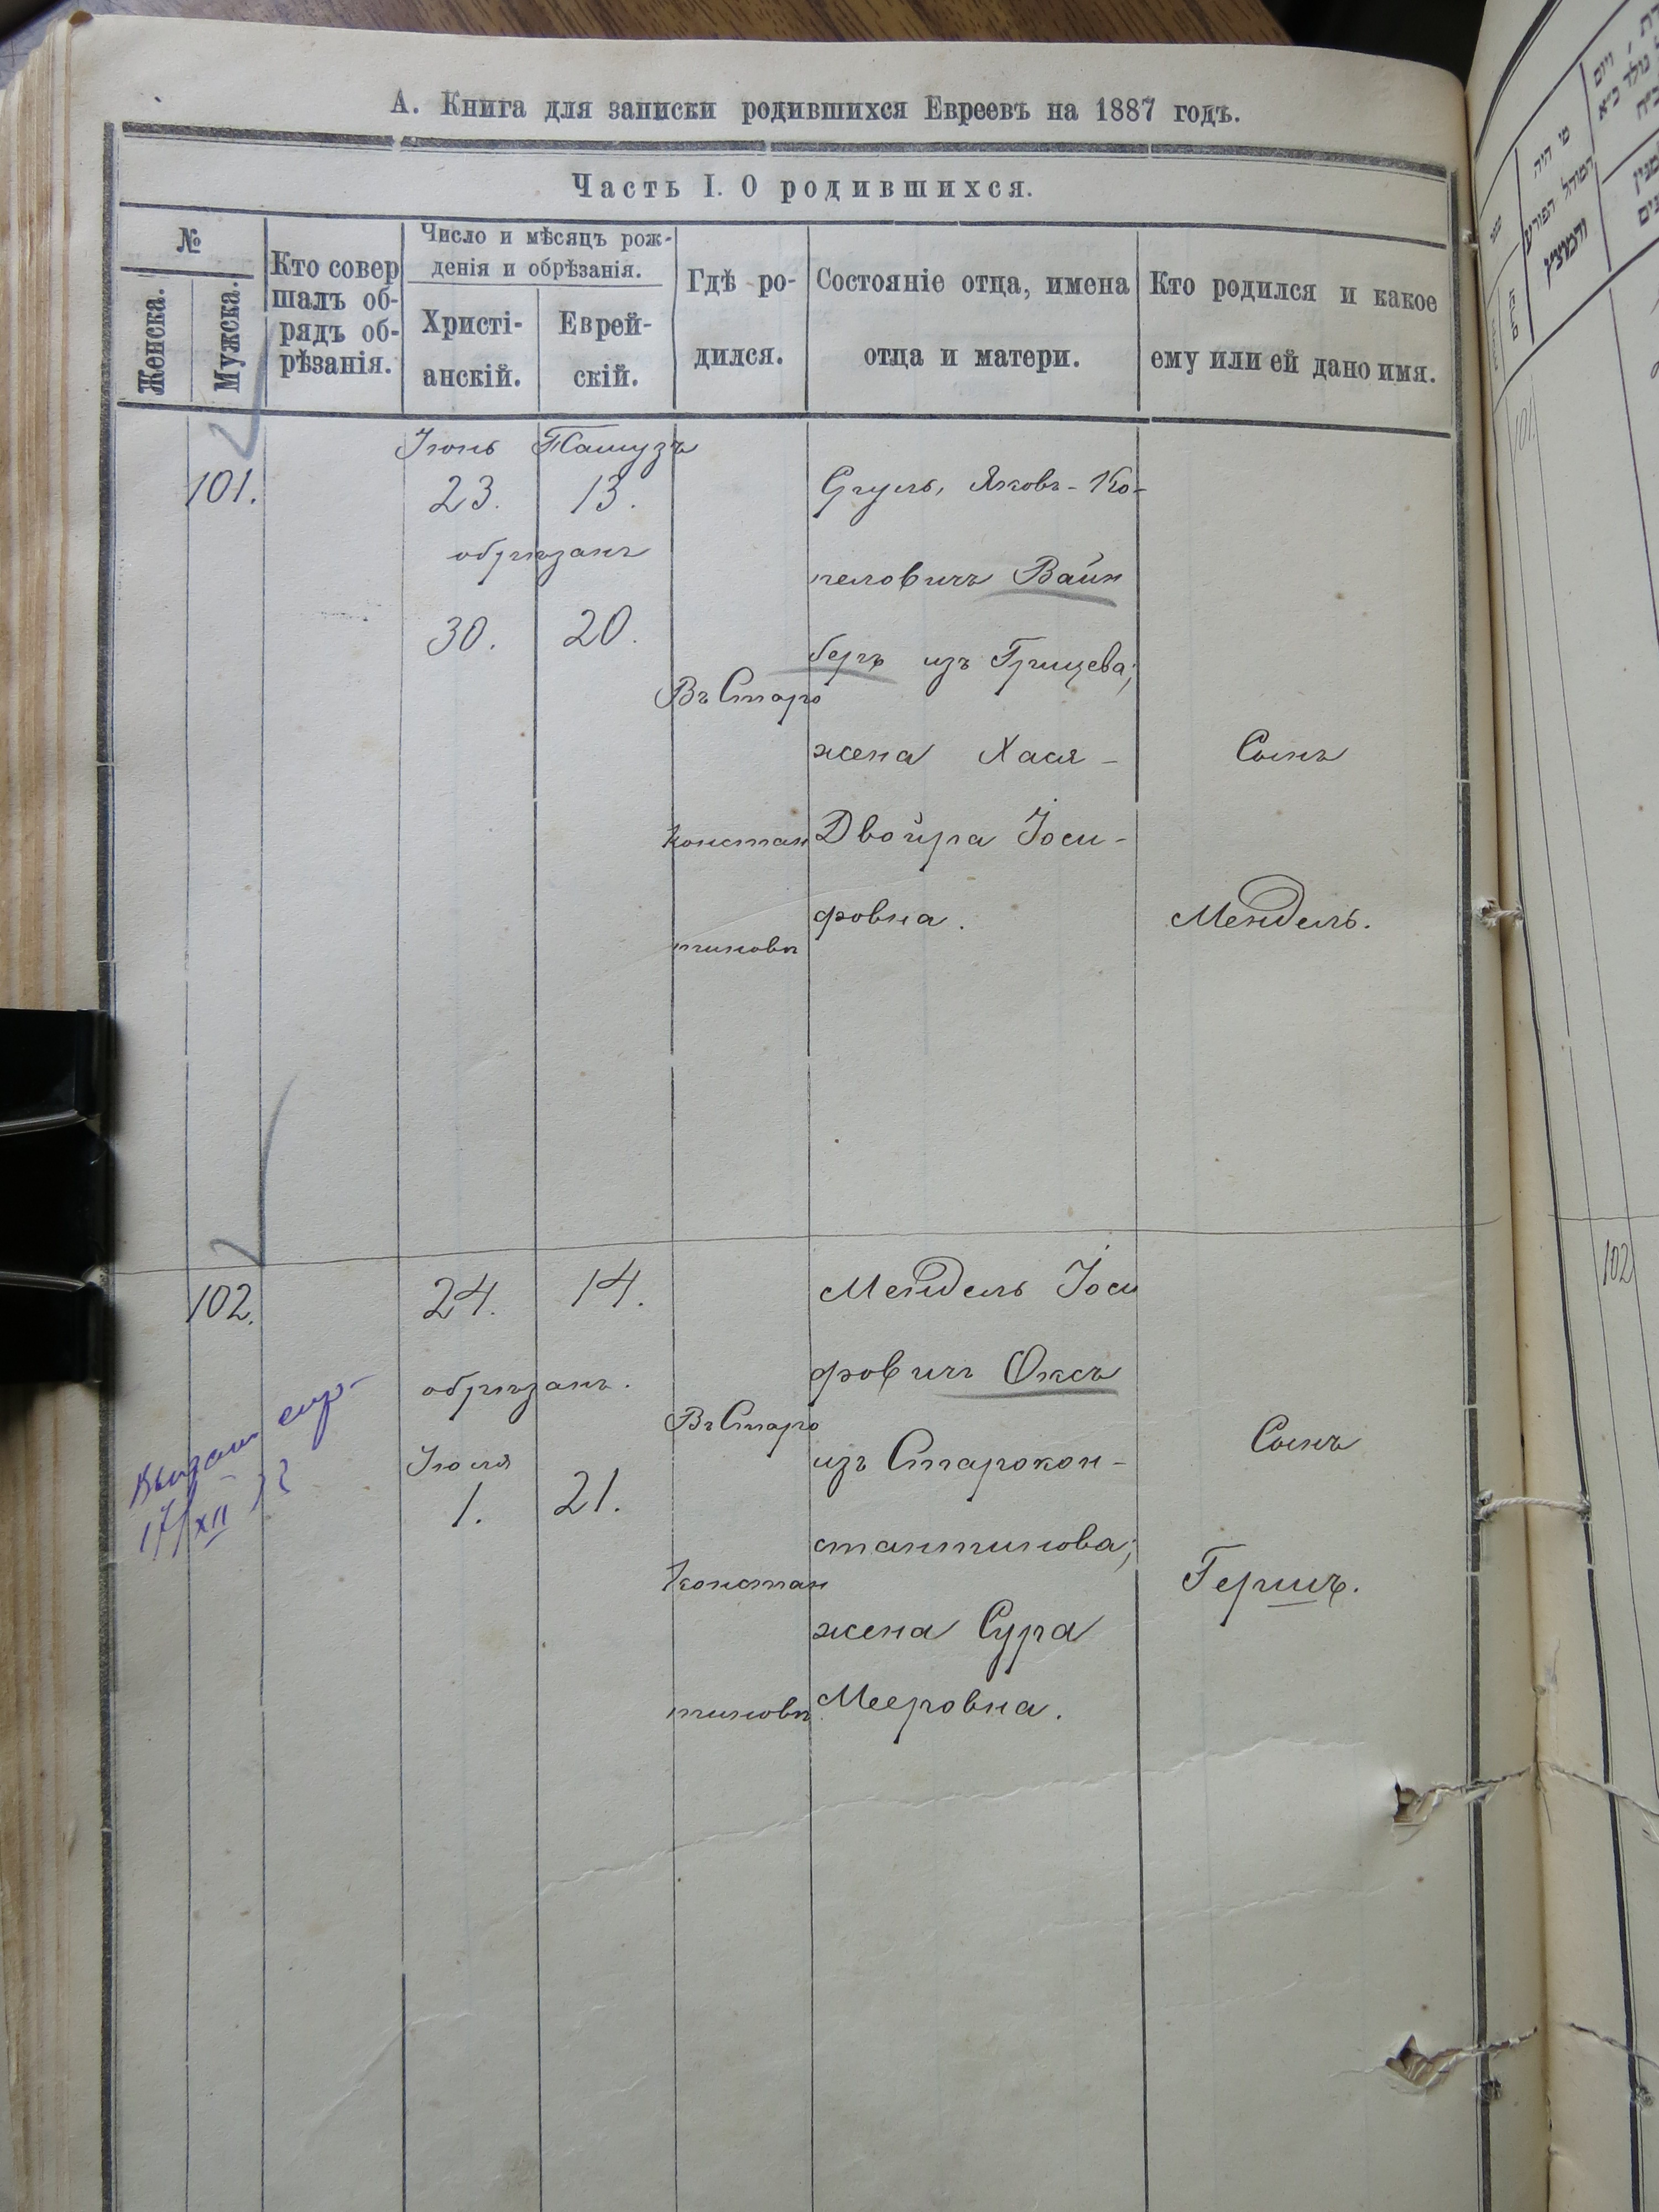 А. Книга для записки родившихся Евреевъ на 1887 годъ.
Часть I. О родившихся.
№
Женска.
Мужска.
Кто совер
шалъ об-
рядъ об-
рѣзанія.
Число и мѣсяцъ рож-
денія и обрѣзанія.
Христі-
анскій.
Еврей-
скій.
Гдѣ ро-
дился.
Состояніе отца, имена
отца и матери.
Кто родился и какое
ему или ей дано имя.
101.
Іюнь
23.
Тамузъ
13.
обрѣзанъ
30.
20.
Въ Старо
констан
тиновѣ
Сруль, Яковъ-Ко-
пеловичъ Вайн
беръ изъ Грицева;
жена Хася-
Двойра Іоси-
фовна.
Сынъ
Мендель.
102.
24.
14.
обрѣзанъ.
Іюля
1.
21.
Въ Старо
констан
тиновѣ
Мендель Іоси
фовичъ Оксъ
изъ Старокон-
стантинова;
жена Сура
Мееровна.
Сынъ
Гершъ.
17/XII
101
102